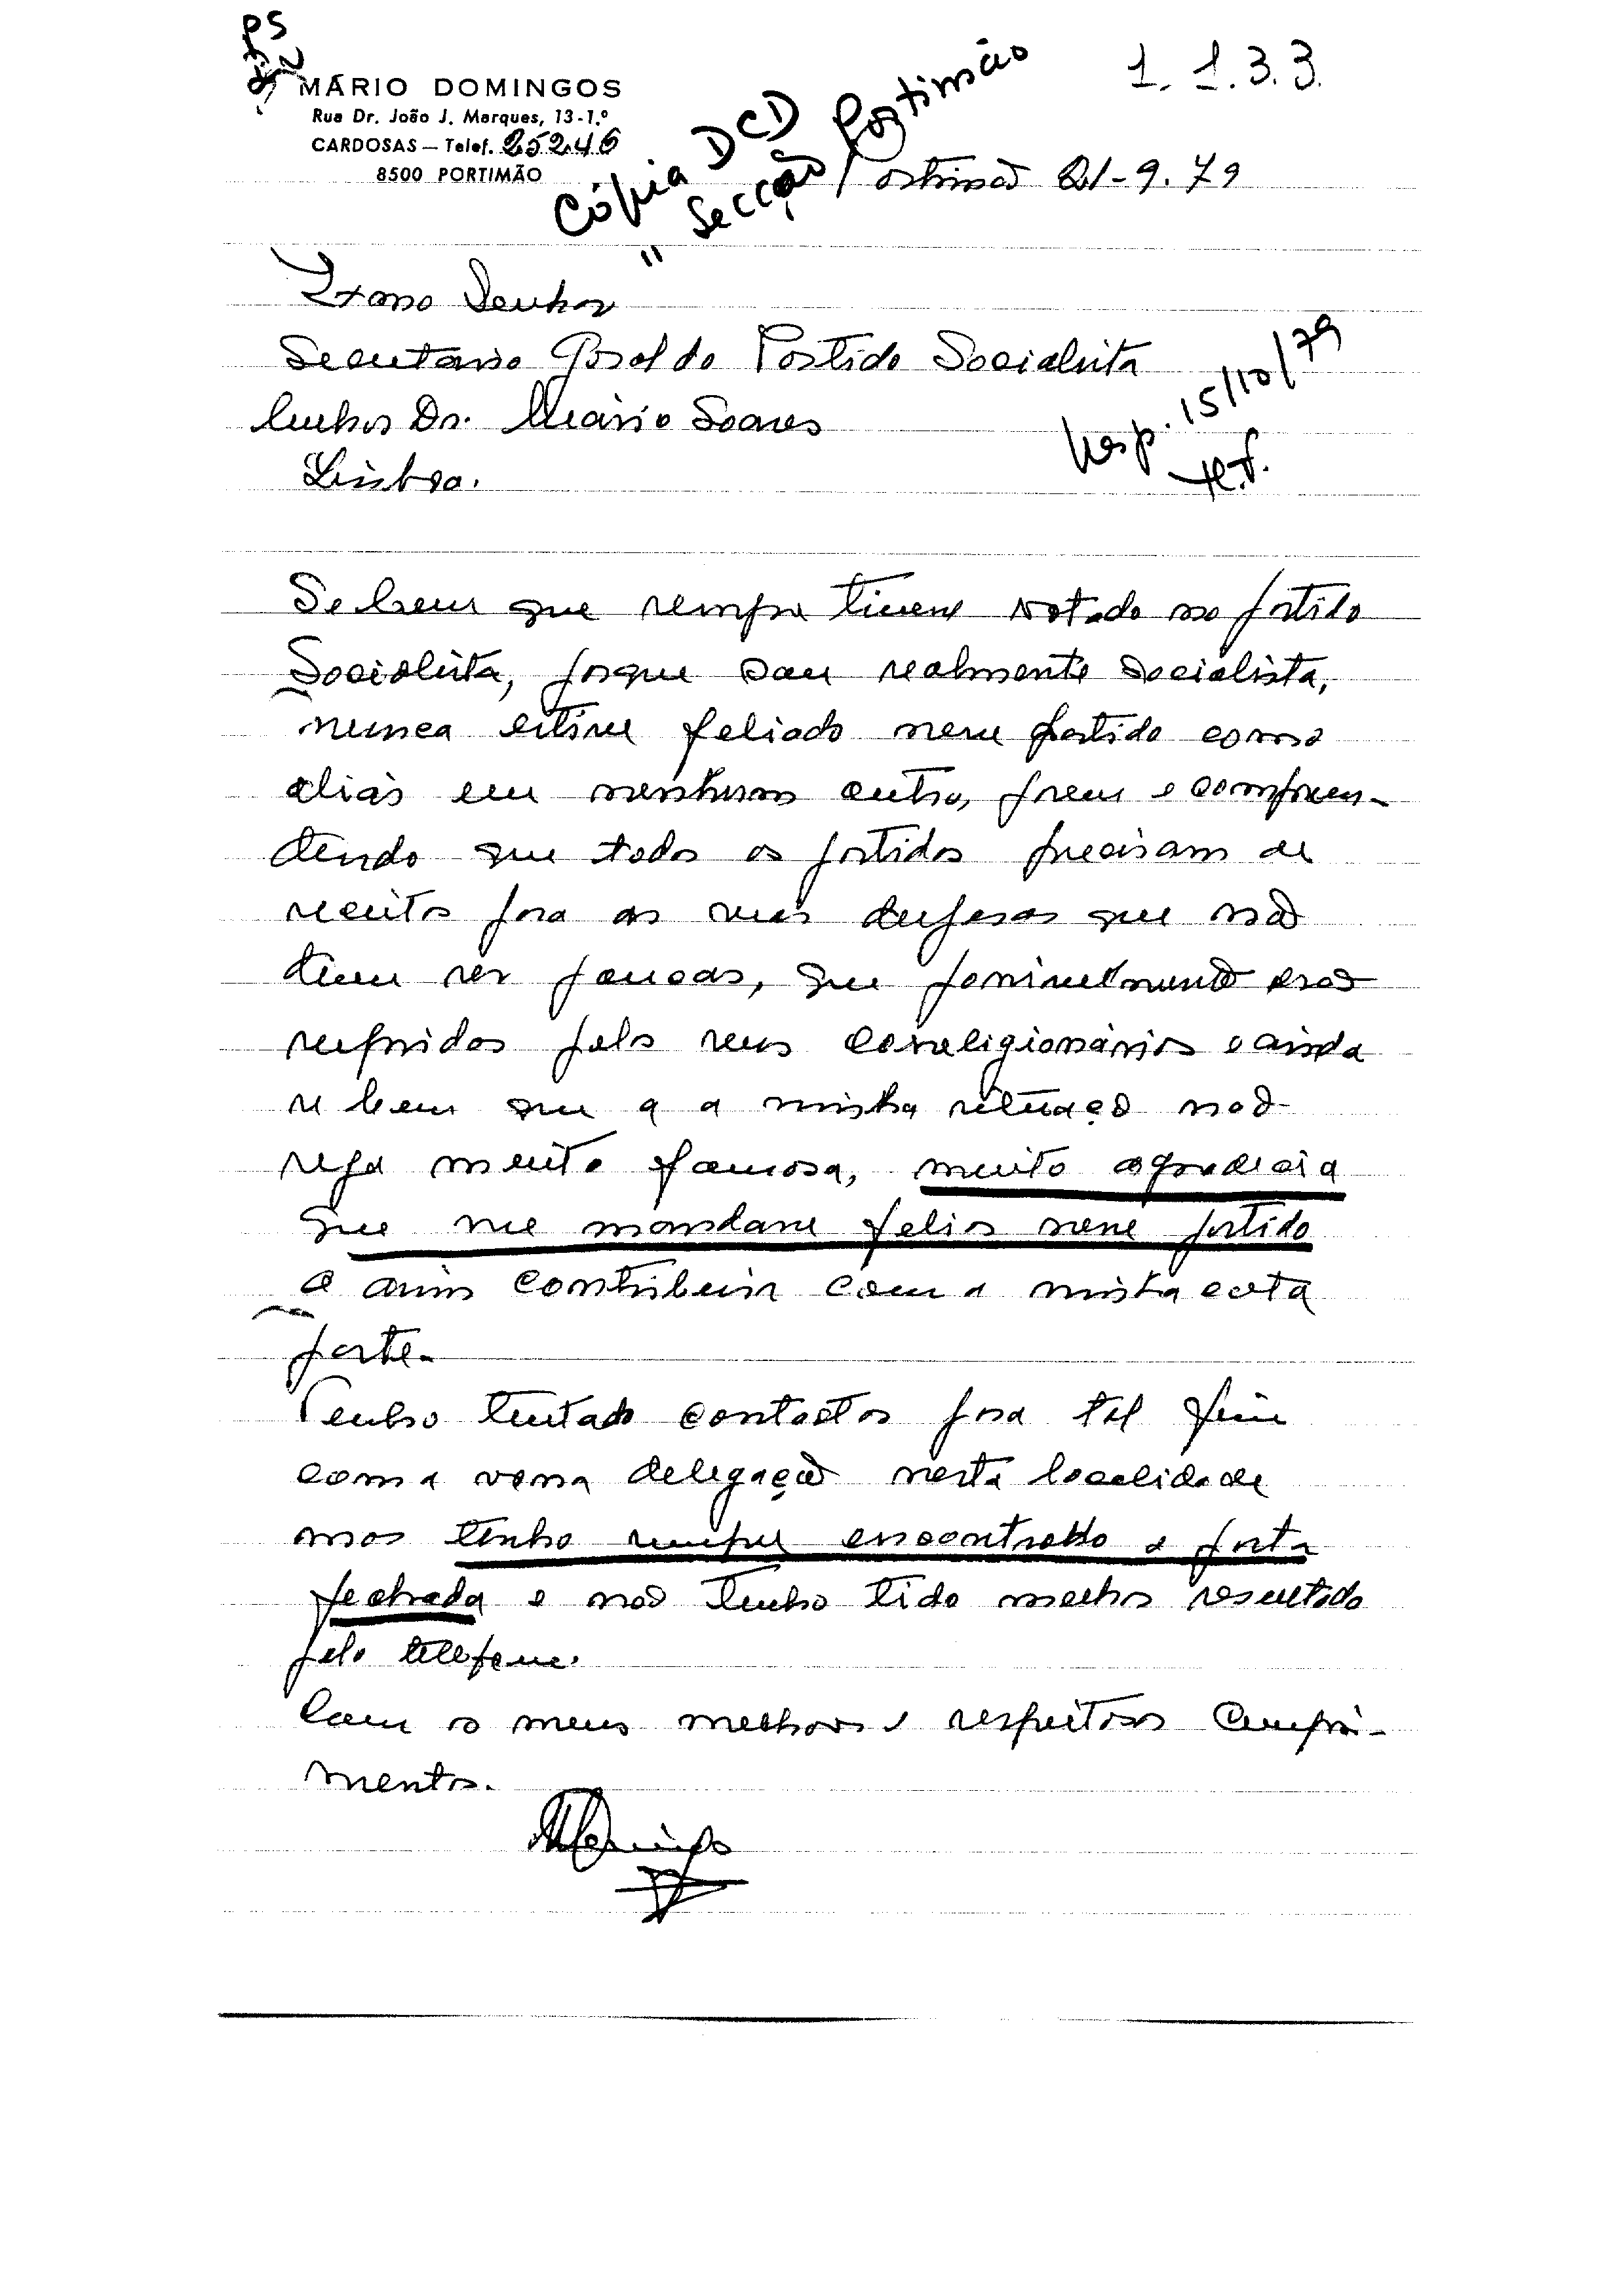 PS
MÁRIO DOMINGOS
Rua Dr. João J. Marques, 13-1.º
CARDOSAS — Telef. 25246
8500 PORTIMÃO
1.1.3.3.
Cópia DCD
" Secção Portimão
Portimão 21-9.79
Exmo Senhor
Secretario Geral do Partido Socialista
Senhor Dr. Mário Soares
Lisboa.
Resp. 15/10/79
Se bem que sempre tivesse votado no partido
Socialista, porque sou realmente socialista,
nunca estive feliado nesse partido como
aliás em nenhum outro, porem e compreen-
dendo que todos os partidos precisam de
muito para as suas despesas que não
devem ser poucas, que possivelmente são
supridas pelos seus correligionários e ainda
se bem que a a minha situação não
seja muito famosa, muito agradecia
que me mandasse feliar nesse partido
e assim contribuir com a minha cota
parte.
Tenho tentado contactos para tal fim
com a vossa delegação nesta localidade
mas tenho sempre encontrado a porta
fechada e não tenho tido melhor resultado
pelo telefone.
Com os meus melhores e respeitosos Cumpri-
mentos.
MDomingos